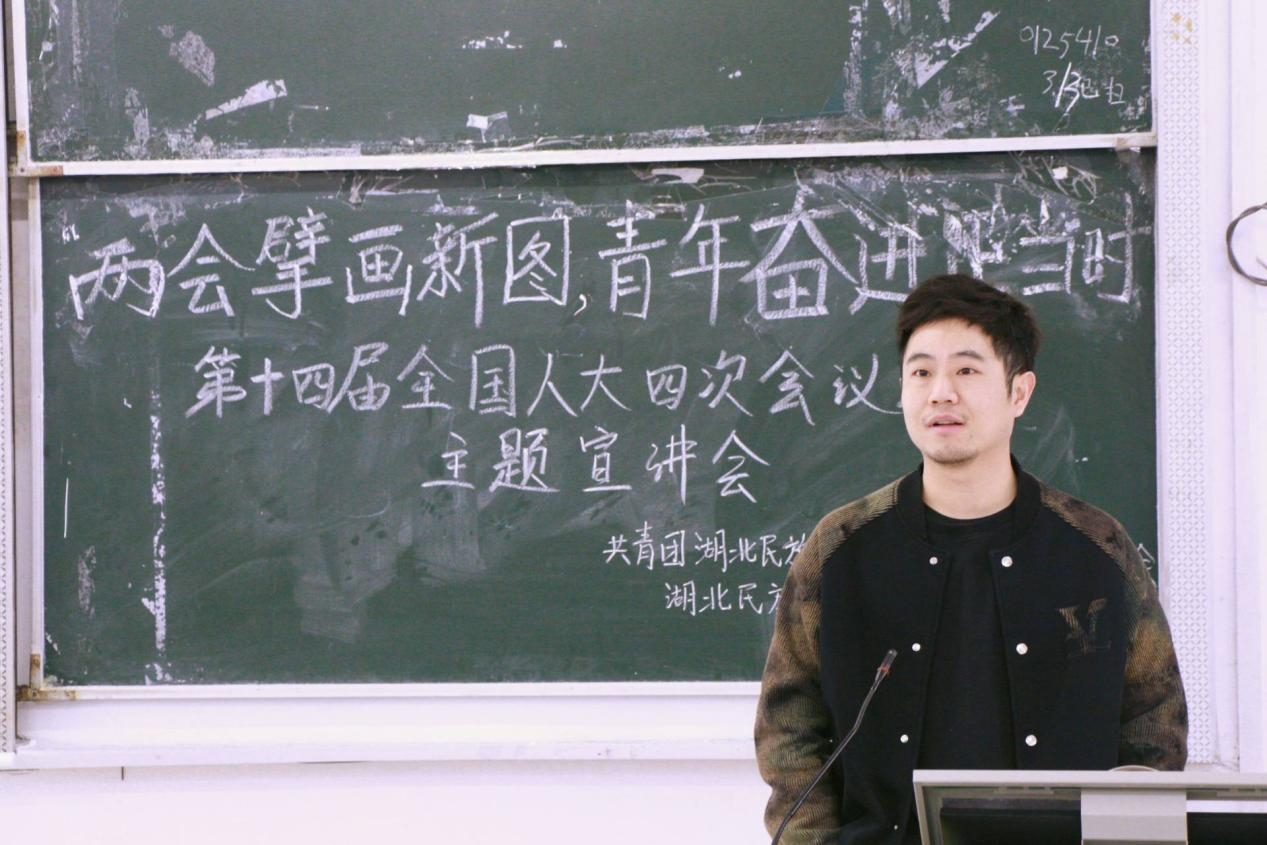 0125410
3/3
两会擘画新图,青年奋进正当时
第十四届全国人大四次会议
主题宣讲会
共青团湖北民族
湖北民族
LV